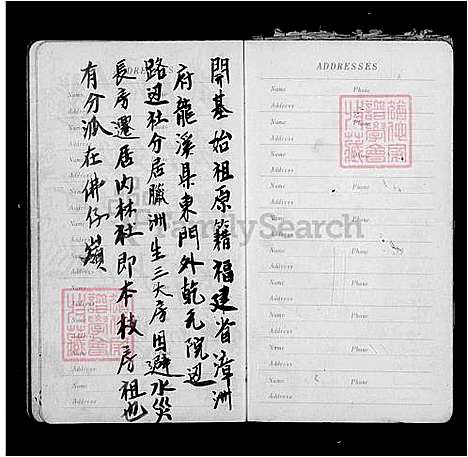 開基始祖原籍福建省漳洲
府龍溪県東門外乾元院边
路边社分居臘洲生三大房因避水災
長房遷居内林社即本枝房祖也
有分派在佛仔嶺
ADDRESSES
Name Phone
Address
Name Phone
Address
Name Phone
Address
Name Phone
Address
Name Phone
Address
Name Phone
Address
Name Phone
Address
Name Phone
Address
Name Phone
Address
Name Phone
Address
FamilySearch